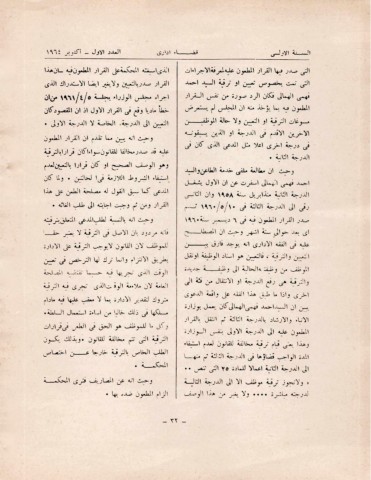 السنة الاولى
قضاء ادارى
العدد الاول - أكتوبر ١٩٦٤
التى صدر فيها القرار المطعون عليه لمعرفة الاجراءات
التى تمت بخصوص تعيين أو ترقية السيد أحمد
فهمى الهمالى فكان الرد صورة من نفس القرار
المطعون فيه بما يؤخذ منه ان المجلس لم يستعرض
مسوغات الترقية أو التعيين ولا حالة الموظفين
الآخرين الأقدم فى الدرجة أو الذين يسبقونه
فى درجة أخرى اعلا مثل المدعى الذى كان فى
الدرجة الثانية .
وحيث ان مطالعة ملفى خدمة الطاعن والسيد
أحمد فهمى الهمالى أسفرت عن ان الأول يشغل
الدرجة الثانية منذ ابريل سنة ١٩٥٨ وان الثانى
رقى الى الدرجة الثالثة فى ١٩٦٠/٥/١٠ ثم
صدر القرار المطعون فيه فى ٦ ديسمبر سنة ١٩٦٠
اى بعد حوالى ستة اشهر وحيث ان المصطلح
عليه فى الفقه الادارى انه يوجد فارق بين
التعيين والترقية ، فالتعيين هو اسناد الوظيفة
والترقية هى رفع الدرجة أو الانتقال من فئة الى
اخرى واذا ما طبق هذا الفقه على واقعة الدعوى
يبين ان السيد أحمد فهمى الهمالى كان يعمل بوزارة
الانباء والارشاد بالدرجة الثالثة ثم انتقل بالقرار
المطعون عليه الى الدرجة الاولى بنفس الوزارة
وهذا يعنى قيام ترقية مخالفة للقانون لعدم قضاء
المدة الواجب قضاؤها فى الدرجة الثالثة ثم منها
الى الدرجة الثانية اعمالا للمادة ٢٥ التى تنص ٠٠
، ولا تجوز ترقية موظف الا الى الدرجة التالية
لدرجته مباشرة ٠٠٠٠ ولا يغير من هذا الوصف
الذى اسبغته المحكمة على القرار المطعون فيه
القرار المطعون فيه ايضا الاستدراك الذى
اجراه مجلس الوزراء بجلسة ١٩٦١/٤/٥ من ان
خطأ ماديا وقع فى القرار الأول المطعون
عليه قد صدر بالترقية فى حين انه كان يقصد
التعيين فى الدرجة الاولى .
وحيث انه يبين مما تقدم ان القرار المطعون
عليه صدر مخالفا للقانون سواء كان قرارا بالترقية
وهو الوصف الصحيح او كان قرارا بالتعيين لعدم
استيفاء الشروط اللازمة قانونا لحالتين . ولما كان
المدعى كما سبق القول له مصلحة الطعن على هذا
القرار . ومن ثم وجبت اجابته الى طلب الغائه .
وحيث انه بالنسبة لطلب المدعى المتعلق بترقيته
فانه مردود بان الاصل فى الترقية لا تعتبر حقا
للموظف لان القانون لم يوجب الترقية على الادارة
بطريق الالتزام وانما ترك لها الترخص فى تعيين
الوقت الذى تجريها فيه حسبما تقتضيه المصلحة
العامة لان ملاءمة الوقت الذى تجرى فيه الترقية
متروك لتقدير الادارة بما لا معقب عليها فيه مادام
مسلكها فى ذلك خاليا من اساءة استعمال السلطة،
وكل ما للموظف هو الحق فى الطعن فى قرارات
الترقية التى تتم مخالفة للقانون وبذلك يكون
الطلب الخاص بالترقية خارجا عن اختصاص
المحكمة .
وحيث انه عن المصاريف فترى المحكمة
الزام المطعون ضده بها .
- ٣٩ -